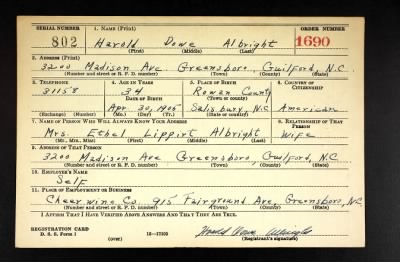 SERIAL NUMBER 1. NAME (Print) ORDER NUMBER
802 Harold Dowe Albright 1690
(First) (Middle) (Last)
2. ADDRESS (Print)
3200 Madison Ave Greensboro, Guilford, N.C.
(Number and street or R. F. D. number) (Town) (County) (State)
3. TELEPHONE 4. AGE IN YEARS 5. PLACE OF BIRTH 6. COUNTRY OF CITIZENSHIP
31158 34 Rowan County
DATE OF BIRTH (Town or county)
Apr. 30, 1906 Salisbury, N.C American
(Exchange) (Number) (Mo.) (Day) (Yr.) (State or country)
7. NAME OF PERSON WHO WILL ALWAYS KNOW YOUR ADDRESS 8. RELATIONSHIP OF THAT PERSON
Mrs. Ethel Lippirt Albright Wife
(Mr., Mrs., Miss) (First) (Middle) (Last)
9. ADDRESS OF THAT PERSON
3200 Madison Ave Greensboro, Guilford, N.C.
(Number and street or R. F. D. number) (Town) (County) (State)
10. EMPLOYER'S NAME
Self
11. PLACE OF EMPLOYMENT OR BUSINESS
Cheerwine Co. 915 Fairground Ave, Greensboro, NC
(Number and street or R. F. D. number) (Town) (County) (State)
I AFFIRM THAT I HAVE VERIFIED ABOVE ANSWERS AND THAT THEY ARE TRUE.
REGISTRATION CARD
D. S. S. Form 1 (over) 16—17105 Harold Dowe Albright
(Registrant's signature)